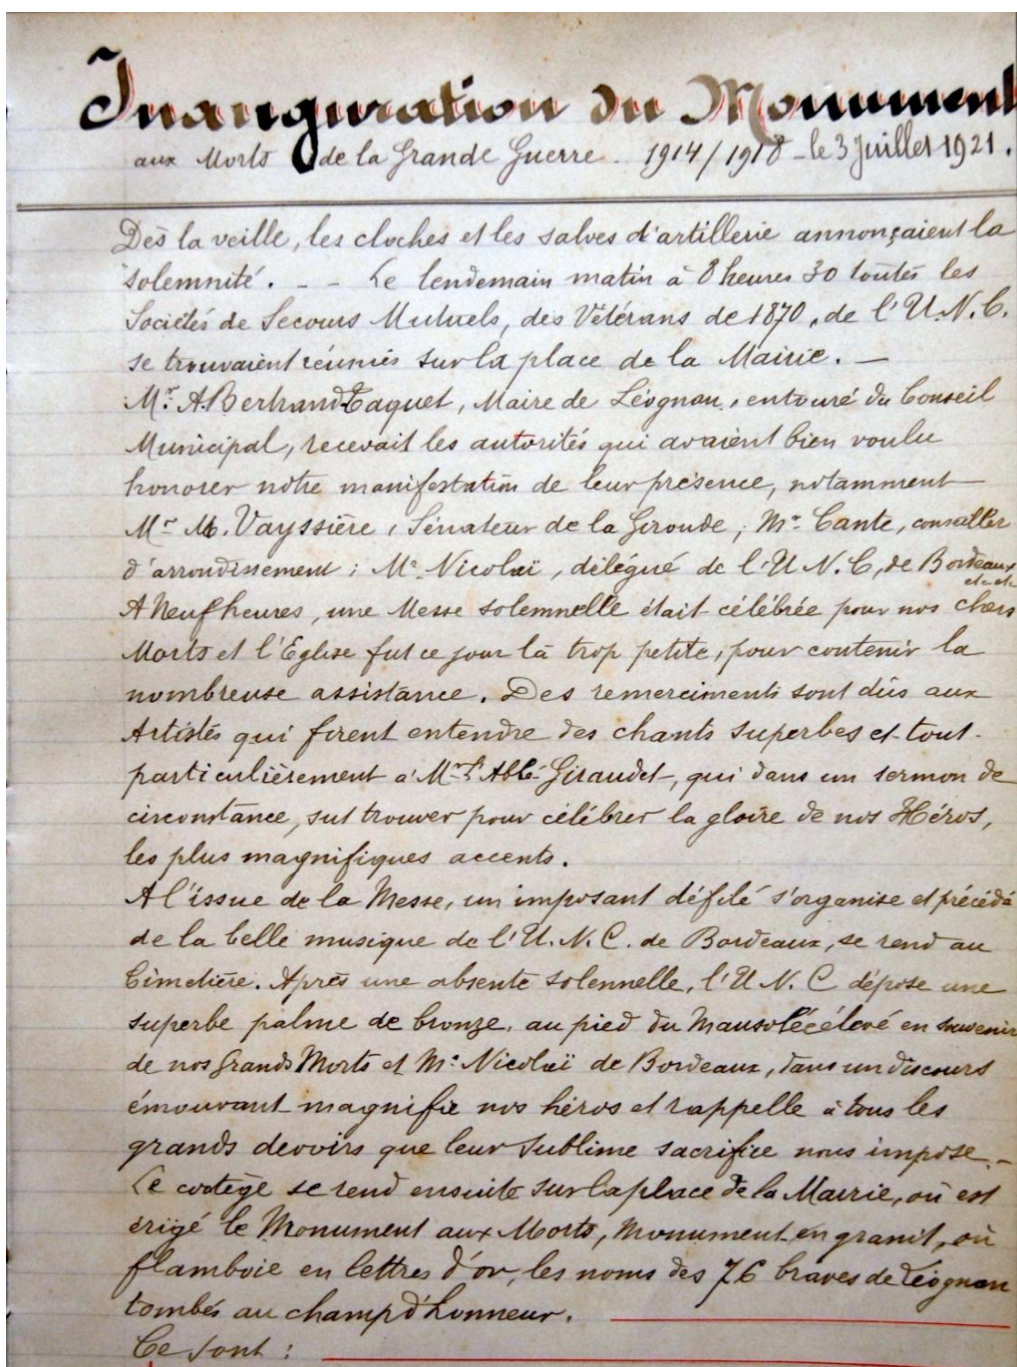 Inauguration du Monument
aux Morts de la Grande Guerre. 1914/1918 - le 3 Juillet 1921.
Dès la veille, les cloches et les salves d'artillerie annonçaient la
solemnité. - - Le lendemain matin à 8 heures 30 toutes les
Sociétés de Secours Mutuels, des Vétérans de 1870, de l'U.N.C.
se trouvaient réunies sur la place de la Mairie. -
Mr. A. Bertrand Taquet, Maire de Léognan, entouré du Conseil
Municipal, recevait les autorités qui avaient bien voulu
honorer notre manifestation de leur présence, notamment
Mr M. Vayssière, Sénateur de la Gironde, Mr Cante, conseiller
d'arrondissement ; Mr Nicolaï, délégué de l'U.N.C, de Bordeaux
etc. etc.
A Neuf heures, une Messe solemnelle était célébrée pour nos chers
Morts et l'Eglise fut ce jour là trop petite, pour contenir la
nombreuse assistance. Des remerciments sont dûs aux
Artistes qui firent entendre des chants superbes et tout-
particulièrement à Mr l'Abbé Giraudet, qui dans un sermon de
circonstance, sut trouver pour célébrer la gloire de nos Héros,
les plus magnifiques accents.
A l'issue de la Messe, un imposant défilé s'organise et précédé
de la belle musique de l'U.N.C. de Bordeaux, se rend au
Cimetière. Après une absente solennelle, l'U.N.C dépose une
superbe palme de bronze, au pied du Mausolée élevé en souvenir
de nos Grands Morts et Mr Nicolaï de Bordeaux, dans un discours
émouvant magnifie nos héros et rappelle à tous les
grands devoirs que leur sublime sacrifice nous impose. -
Le cortège se rend ensuite sur la place de la Mairie, où est
érigé le Monument aux Morts, Monument en granit, où
flamboie en lettres d'or, les noms des 76 braves de Léognan
tombés au champ d'honneur.
Ce sont :